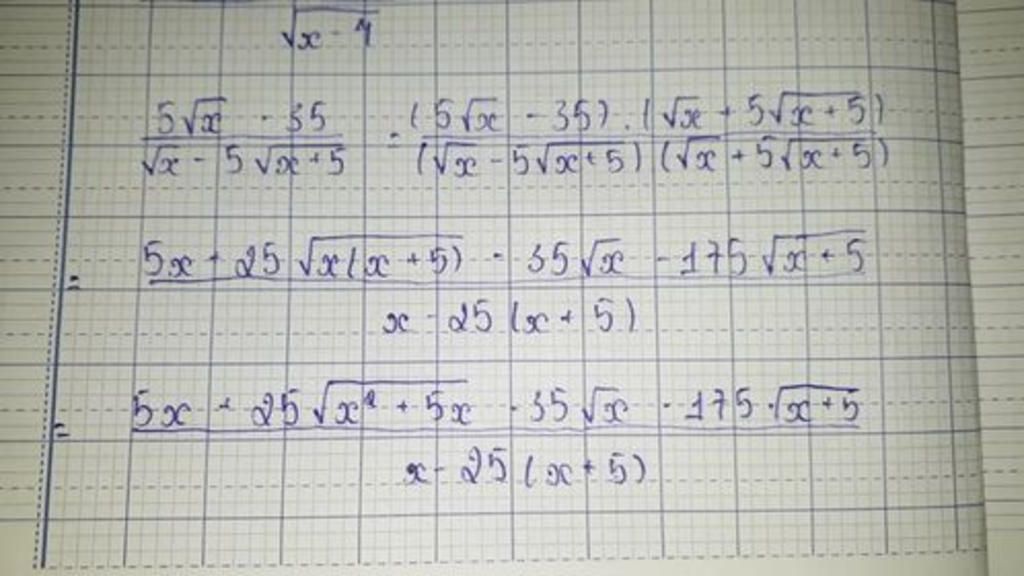 √x - 4
(5√x - 35)/(√x - 5√x+5) = ((5√x - 35).(√x + 5√x+5))/((√x - 5√x+5)(√x + 5√x+5))
= (5x + 25√x(x+5) - 35√x - 175√x+5)/(x - 25(x+5))
= (5x + 25√x² + 5x - 35√x - 175.√x+5)/(x - 25(x+5))